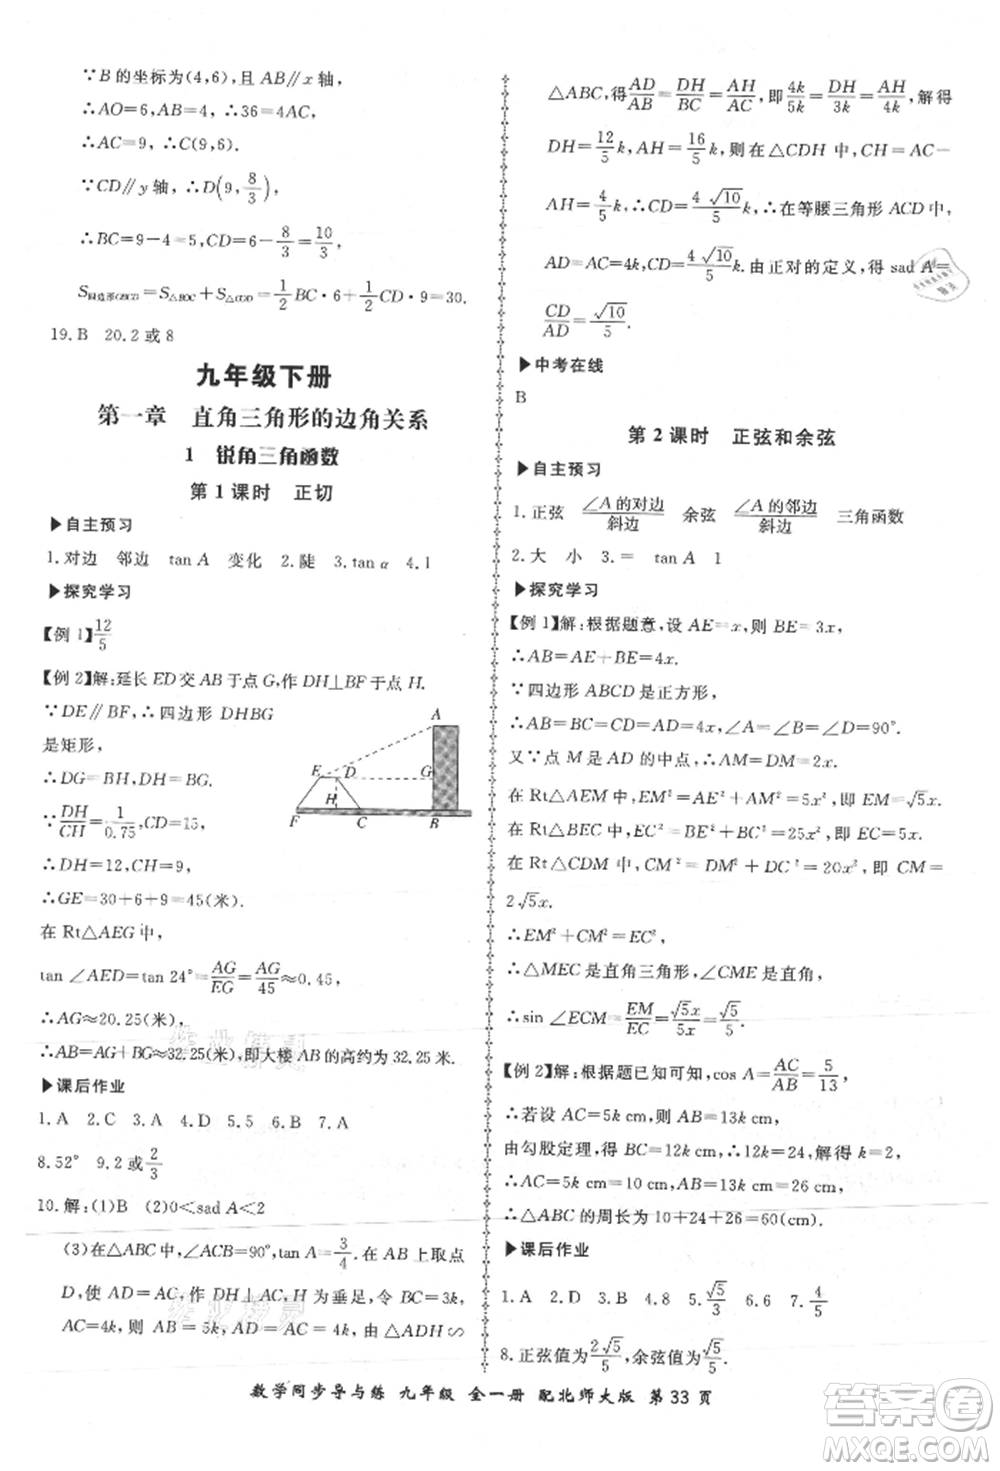 ∵B的坐标为(4,6),且AB∥x轴,
∴AO=6,AB=4,∴36=4AC,
∴AC=9,∴C(9,6).
∵CD∥y轴,∴D(9,8/3),
∴BC=9-4=5,CD=6-8/3=10/3,
S四边形OBCD=S△BOC+S△COD=1/2BC·6+1/2CD·9=30.
19.B 20.2或8
九年级下册
第一章 直角三角形的边角关系
1 锐角三角函数
第1课时 正切
▶自主预习
1.对边 邻边 tan A 变化 2.陡 3.tan α 4.1
▶探究学习
【例1】12/5
【例2】解:延长ED交AB于点G,作DH⊥BF于点H.
∵DE∥BF,∴四边形DHBG
是矩形,
∴DG=BH,DH=BG.
∵DH/CH=1/0.75,CD=15,
∴DH=12,CH=9.
∴GE=30+6+9=45(米).
在Rt△AEG中,
tan∠AED=tan 24°=AG/EG=AG/45≈0.45,
∴AG≈20.25(米),
∴AB=AG+BG≈32.25(米),即大楼AB的高约为32.25米.
A
E D G
H
F C B
▶课后作业
1.A 2.C 3.A 4.D 5.5 6.B 7.A
8.52° 9.2或2/3
10.解:(1)B (2)0<sad A<2
(3)在△ABC中,∠ACB=90°,tan A=3/4.在AB上取点
D,使AD=AC,作DH⊥AC,H为垂足,令BC=3k,
AC=4k,则AB=5k,AD=AC=4k,由△ADH∽
△ABC,得AD/AB=DH/BC=AH/AC,即4k/5k=DH/3k=AH/4k,解得
DH=12/5k,AH=16/5k,则在△CDH中,CH=AC-
AH=4/5k,CD=4√10/5k.∴在等腰三角形ACD中,
AD=AC=4k,CD=4√10/5k.由正对的定义,得sad A=
CD/AD=√10/5.
▶中考在线
B
第2课时 正弦和余弦
▶自主预习
1.正弦 ∠A的对边/斜边 余弦 ∠A的邻边/斜边 三角函数
2.大 小 3.= tan A 1
▶探究学习
【例1】解:根据题意,设AE=x,则BE=3x,
∴AB=AE+BE=4x.
∵四边形ABCD是正方形,
∴AB=BC=CD=AD=4x,∠A=∠B=∠D=90°.
又∵点M是AD的中点,∴AM=DM=2x.
在Rt△AEM中,EM²=AE²+AM²=5x²,即EM=√5x.
在Rt△BEC中,EC²=BE²+BC²=25x²,即EC=5x.
在Rt△CDM中,CM²=DM²+DC²=20x²,即CM=
2√5x.
∴EM²+CM²=EC².
∴△MEC是直角三角形,∠CME是直角,
∴sin∠ECM=EM/EC=√5x/5x=√5/5.
【例2】解:根据题已知可知,cos A=AC/AB=5/13,
∴若设AC=5k cm,则AB=13k cm,
由勾股定理,得BC=12k cm,∴12k=24,解得k=2,
∴AC=10 cm,AB=26 cm,
∴△ABC的周长为10+24+26=60(cm).
▶课后作业
1.A 2.D 3.B 4.8 5.√5/5 6.6 7.4/5
8.正弦值为2√5/5,余弦值为√5/5
数学同步导与练 九年级 全一册 配北师大版 第33页
答案圈
MXQE.COM